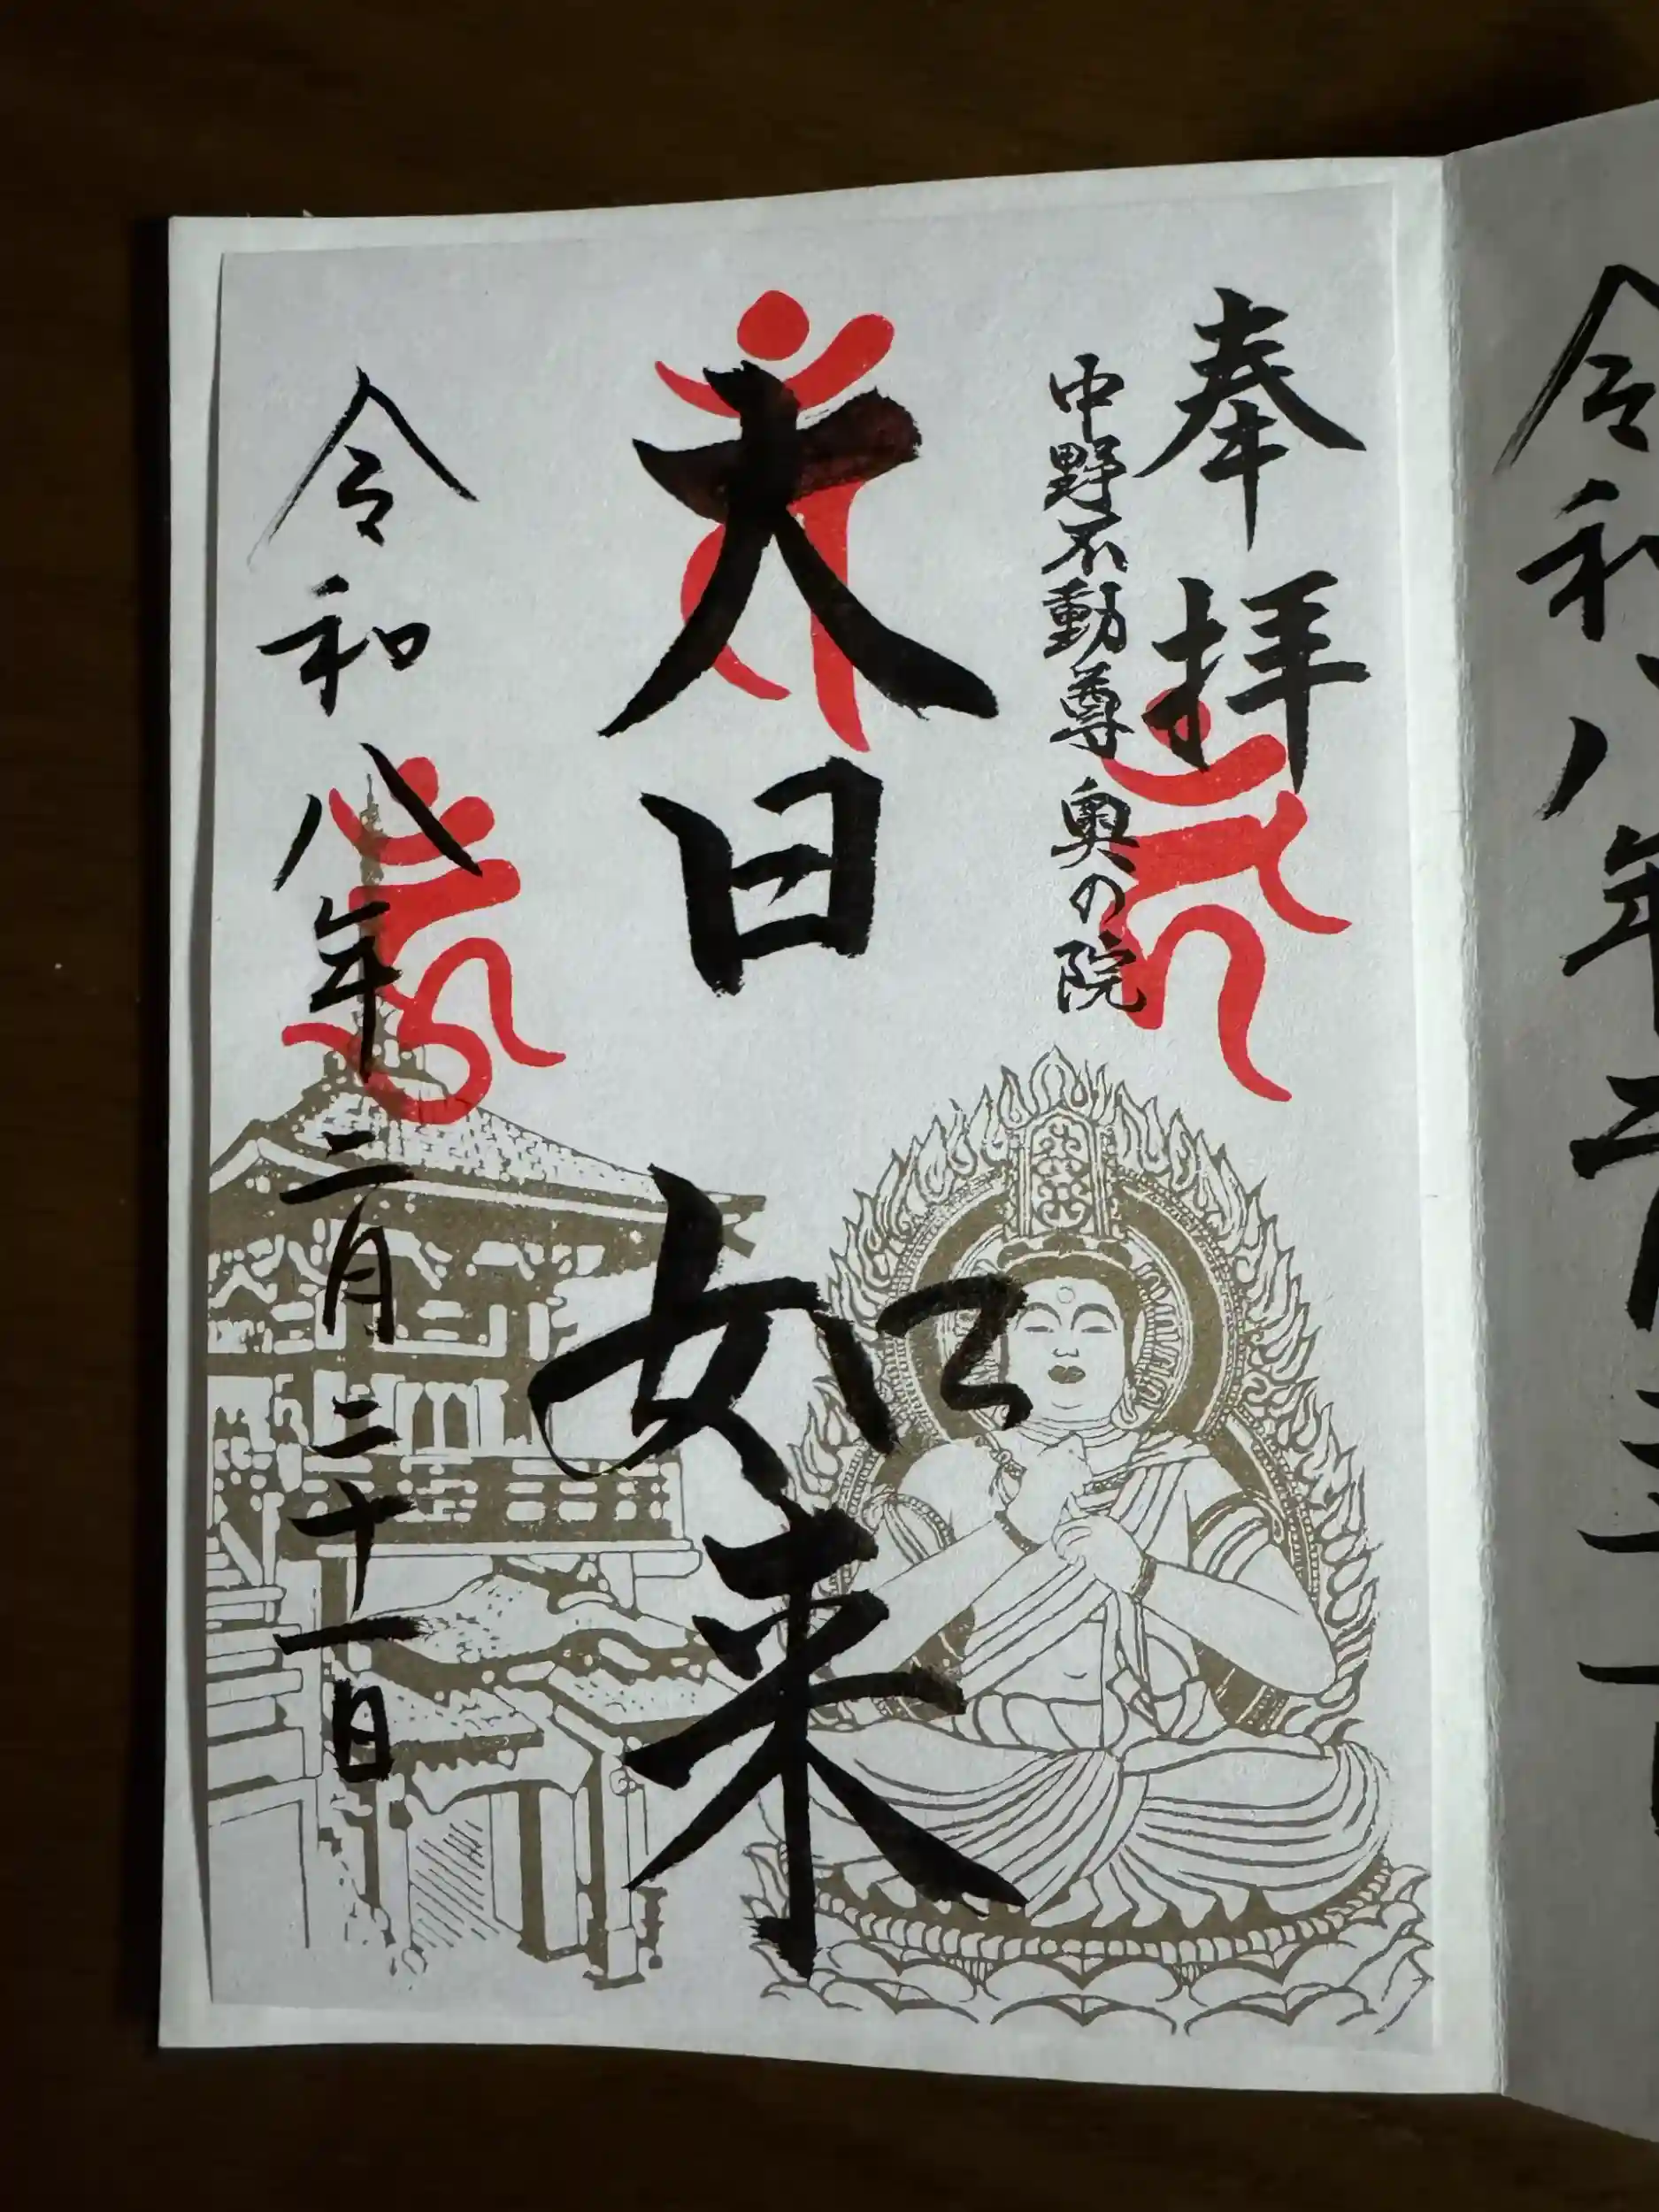 令和八年
奉拝
中野不動尊 奥の院
大日如来
令和八年二月二十一日